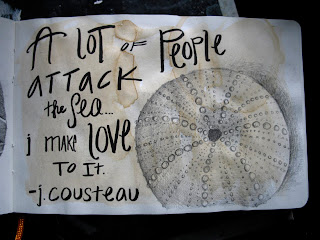 A LOT OF PEOPLE
ATTACK
the Sea...
i make LOVE
TO IT.
-j. cousteau